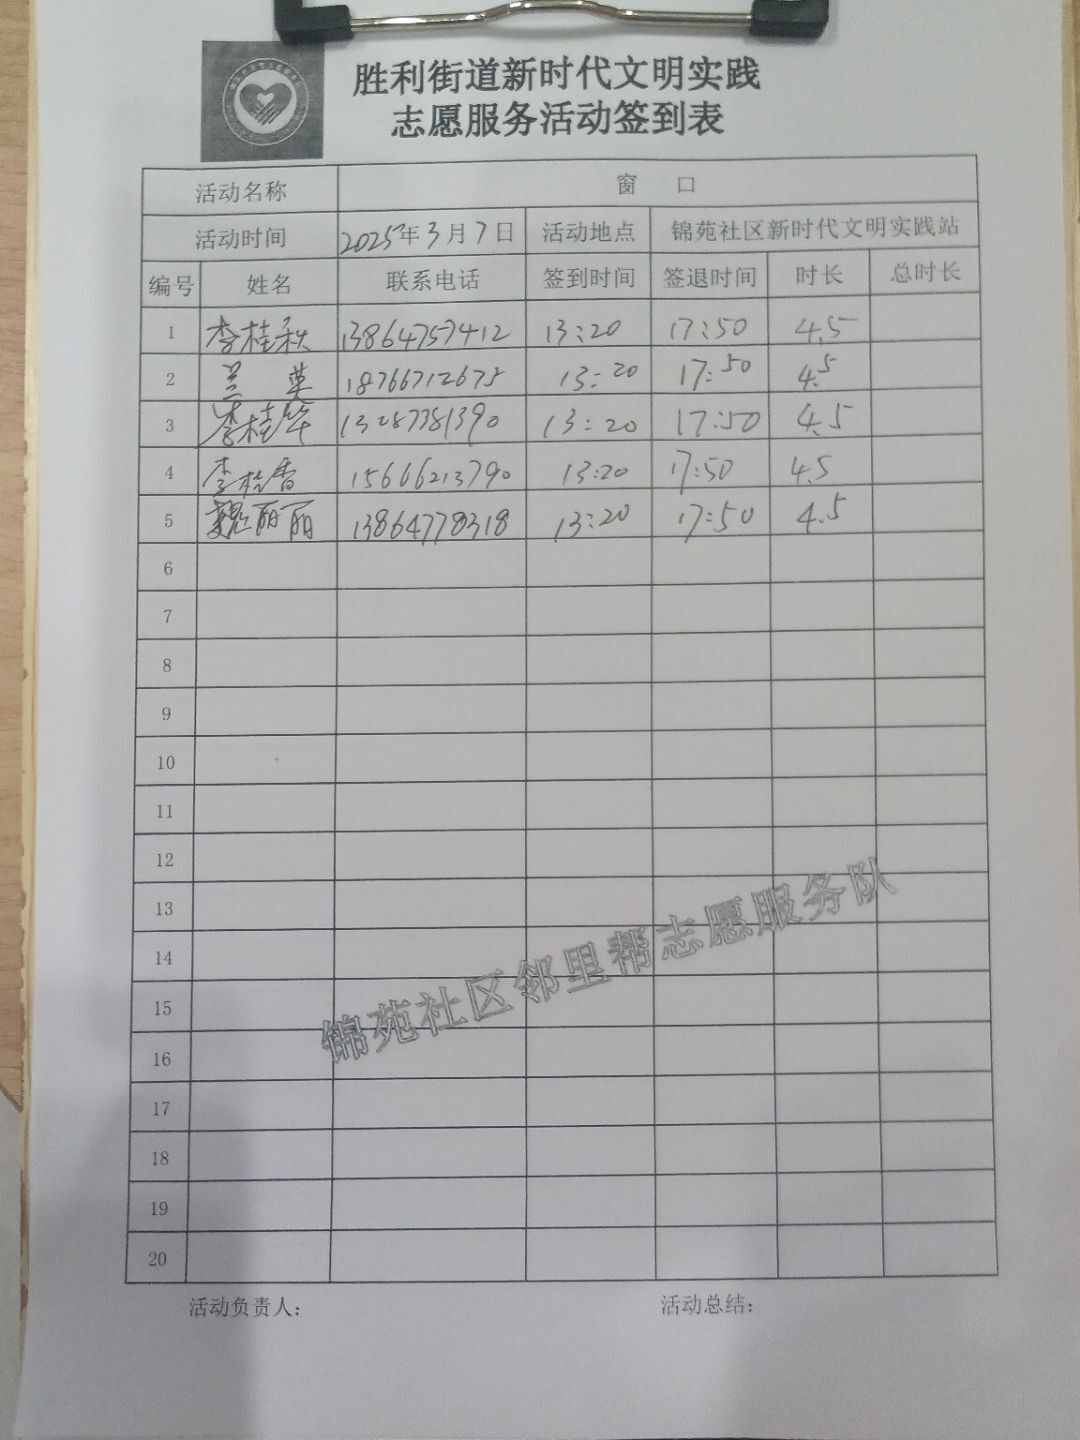 胜利街道新时代文明实践
志愿服务活动签到表
活动名称 窗 口
活动时间 2025年3月7日 活动地点 锦苑社区新时代文明实践站
编号 姓名 联系电话 签到时间 签退时间 时长 总时长
1 李桂秋 13864757412 13:20 17:50 4.5
2 兰英 18766712675 13:20 17:50 4.5
3 李桂华 13287381390 13:20 17:50 4.5
4 李桂香 15666213790 13:20 17:50 4.5
5 魏丽丽 13864778318 13:20 17:50 4.5
6
7
8
9
10
11
12
13
14
15
16
17
18
19
20
锦苑社区邻里帮志愿服务队
活动负责人: 活动总结: